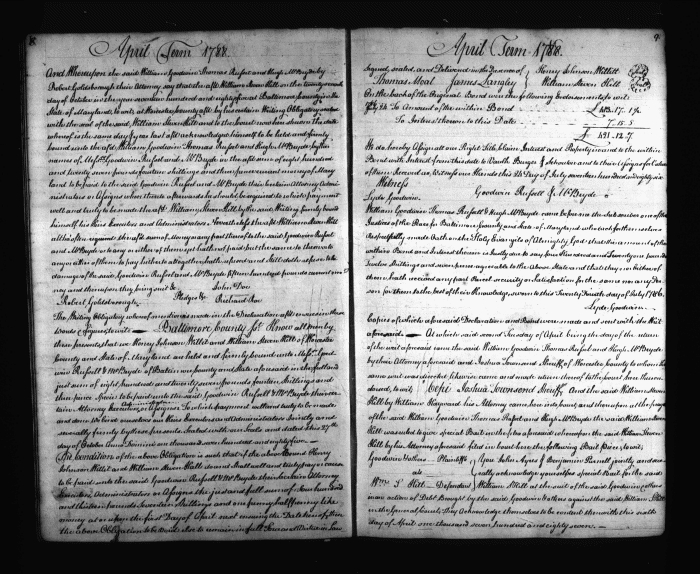 8
April Term 1788.
And Whereupon the said William Goodwin Thomas Russel and Hugh McBryde by
Robert Goldsborough their Attorney say that the aft William Steven Hill on the twenty seventh
day of October in the year seventeen hundred and eighty five at Baltimore County in the
State of Maryland, to wit, at Worcester County aft by his certain Writing Obligatory sealed
with the seal of the said William Steven Hill and to the Court now here shewn the date
whereof is the same day & year last aft acknowledged himself to be held and firmly
bound unto the aft William Goodwin Thomas Russel and Hugh McBryde by the
names of Messrs Goodwin Russel and McBryde in the aft sum of eight hundred
and twenty seven pounds fourteen shillings and three pence current money of Mary
land to be paid to the said Goodwin Russel and McBryde their certain Attorney Admi-
nistrators or Assigns when thereto afterwards he should be required to which payment
well and truly to be made the aft William Steven Hill by the said Writing firmly bound
himself his Heirs Executors and Administrators. Nevertheless the aft William Steven Hill
altho often required the aft sum of Money or any part thereof to the said Goodwin Russel
and McBryde or to any or either of them yet hath not paid but the same to them or to
any or either of them to pay hitherto altogether hath refused and still doth refuse to the
damage of the said Goodwin Russel and McBryde fifteen hundred pounds current mo
ney and thereupon they bring suit &c
John Doe
Robert Goldsborough Pledges &c
Richard Roe
The Writing Obligatory whereof mention is made in the Declaration aft ensues in these
words & figures to wit — Baltimore County Sct Know all men by
these presents that we Henry Johnson Willit and William Steven Hill of Worcester
County and State of Maryland are held and firmly bound unto Messrs Good
win Russell & McBryde of Baltimore County and State aforesaid in the full and
just sum of eight hundred and twenty seven pounds fourteen shillings and
three pence Specie to be paid unto the said Goodwin Russell & McBryde their cer-
tain Attorney Executors, Administrators or Assigns To which payment well and truly to be made
and done We bind ourselves our Heirs Executors and Administrators Jointly and
severally firmly by these presents Sealed with our Seals and dated this 27th
day of October Anno Domini one thousand seven hundred and eighty five —
The Condition of the above Obligation is such that if the above Bound Henry
Johnson Willit and William Steven Hill do and shall well and truly pay or cause
to be paid unto the said Goodwin Russell & McBryde their certain Attorney
Executors, Administrators or Assigns the just and full sum of Four hundred
and thirteen pounds Seventeen Shillings and one penny half penny like
money at or upon the First Day of April next ensuing the Date hereof then
the above Obligation to be Void else to remain in full Force and Virtue in Law
9
April Term 1788.
Signed, sealed, and Delivered in the Presence of Henry Johnson Willitt
Thomas Moal James Langley William Steven Hill
On the back of the Original Bond were the following Endorsements to wit
To Amount of the within Bond £ 413.17.1½
To Interest thereon to this Date 7.15.5
£ 421.12.7
We do hereby Assign all our Right Title Claim Interest and Property in and to the within
Bond with Interest from this date to Vanth Burger & Schouten and to their Assigns for Value
of them Received as Witness our Hands this 24th Day of July seventeen hundred and eighty six
Witness
Goodwin Russell & McBryde
Lyde Goodwin.
William Goodwin Thomas Russell & Hugh McBryde came before me the Subscriber one of the
Justices of the Peace for Baltimore County and State of Maryland which for themselves
Respectfully made Oath on the Holy Evangels of Almighty God that the amount of the
within Bond and Interest thereon is Justly due to say Four Hundred and Twenty one pounds
Twelve Shillings and seven pence agreeable to the Above State and that they nor Either of
them hath received any part Parcel security or Satisfaction for the same nor any Per
son for them to the best of their Knowledge, sworn to this Twenty Fourth day of July 1786.
Lyde Goodwin.
Copies of which aforesaid Declaration and Bond were made and sent with the Writ
aforesaid — At which said second Tuesday of April being the day of the return
of the writ aforesaid came the said William Goodwin Thomas Russel and Hugh McBryde
by their Attorney aforesaid and Joshua Townsend Sheriff of Worcester County to whom the
same writ was directed likewise came and made return thereof to the Court here thereon
endorsed, to wit, Cepi Joshua Townsend Sheriff And the said William Steven
Hill by William Hayward his Attorney came here into Court and thereupon at the prayer
of the said William Goodwin Thomas Russel and Hugh McBryde the said William Steven
Hill was ruled to give special Bail in the plea aforesaid whereupon the said William Steven
Hill by his Attorney aforesaid filed in Court here the following Bail Piece to wit,
Goodwin & others Plaintiffs
vs
Wm S. Hill Defendant
You John Ayres & Benjamin Purnell jointly and sev
erally acknowledge yourselves special Bail for the said
William S Hill at the suit of the said Goodwin & others
in an action of Debt Brought by the said Goodwin & others against the said William S Hill
in the General Court, They Acknowledge themselves to be content therewith this sixth
day of April one thousand seven hundred and eighty seven. —